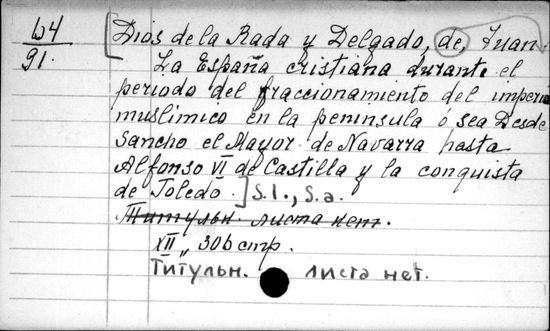 64
91.
[Dios de la Rada y Delgado, de, Juan.
La España cristiana durante el
periodo del fraccionamiento del imperio
muslimico en la peninsula ó sea Desde
Sancho el Mayor de Navarra hasta
Alfonso VI de Castilla y la conquista
de Toledo.] S.l., s.a.
Титульн. листа нет.
XII, 306 стр.
Титульн. листа нет.